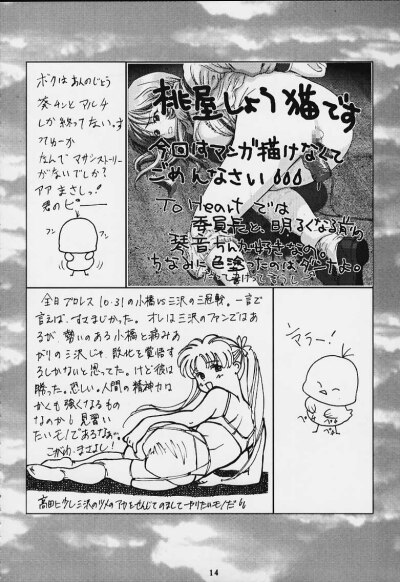 桃屋しょう猫です
今回はマンガ描けなくて
ごめんなさい
To Heartでは
委員長と、明るくなる前の
琴音ちゃんが好きなの。
ちなみに色塗ったのはダンナよ。
ボクはあんのじょう
葵チンとマルチ
しか終ってないっす
てゆーか
なんでマサシストーリー
がないでしか?
アア まさしっ!
君のピー
フン
フン
全日プロレス 10・31の小橋VS三沢の三冠戦。一言で
言えば、すさまじかった。オレは三沢のファンではあ
るが勢いのある小橋と病みあ
がりの三沢じゃ、敗北を覚悟す
るしかないと思ってた。けど彼は
勝った。恐しい。人間の精神力は
かくも強くなるもの
なのかと見習い
たいモノであるなぁ~
シマラー!
14